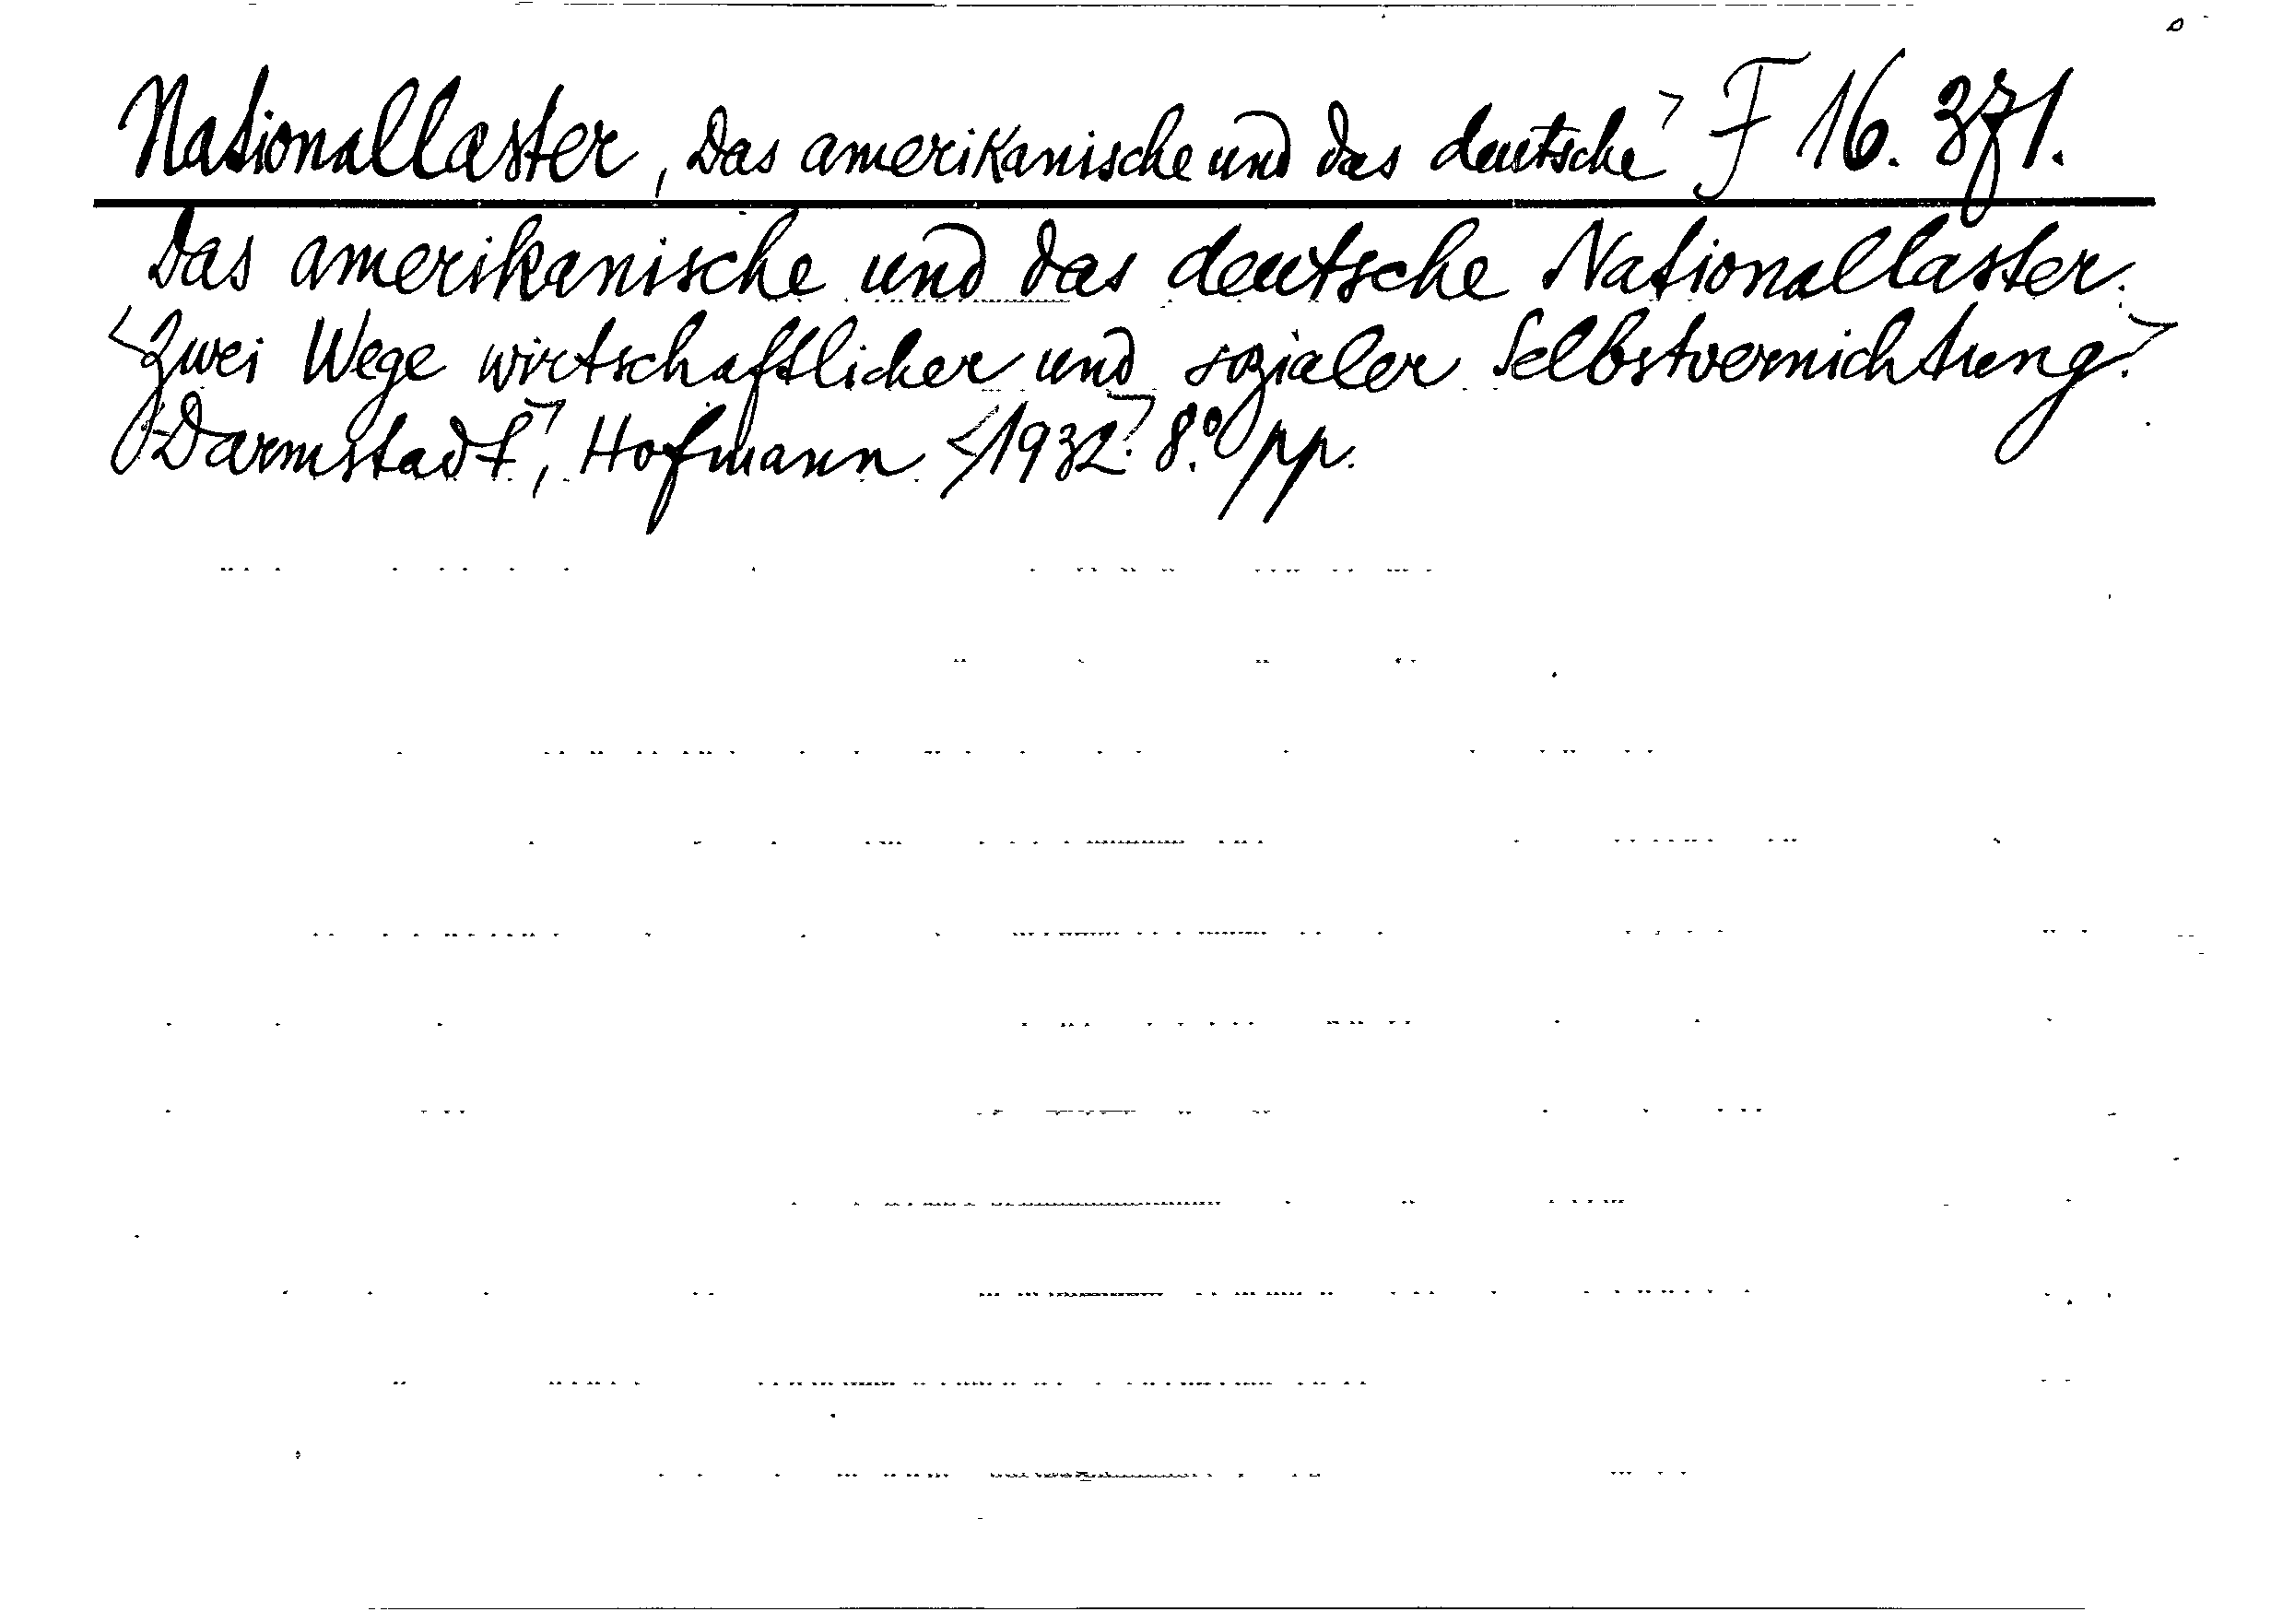 Nationallaster, Das amerikanische und das deutsche> F 16. 371.
Das amerikanische und das deutsche Nationallaster.
<Zwei Wege wirtschaftlicher und sozialer Selbstvernichtung.>
Darmstadt>, Hofmann <1932.> 8.° pp.